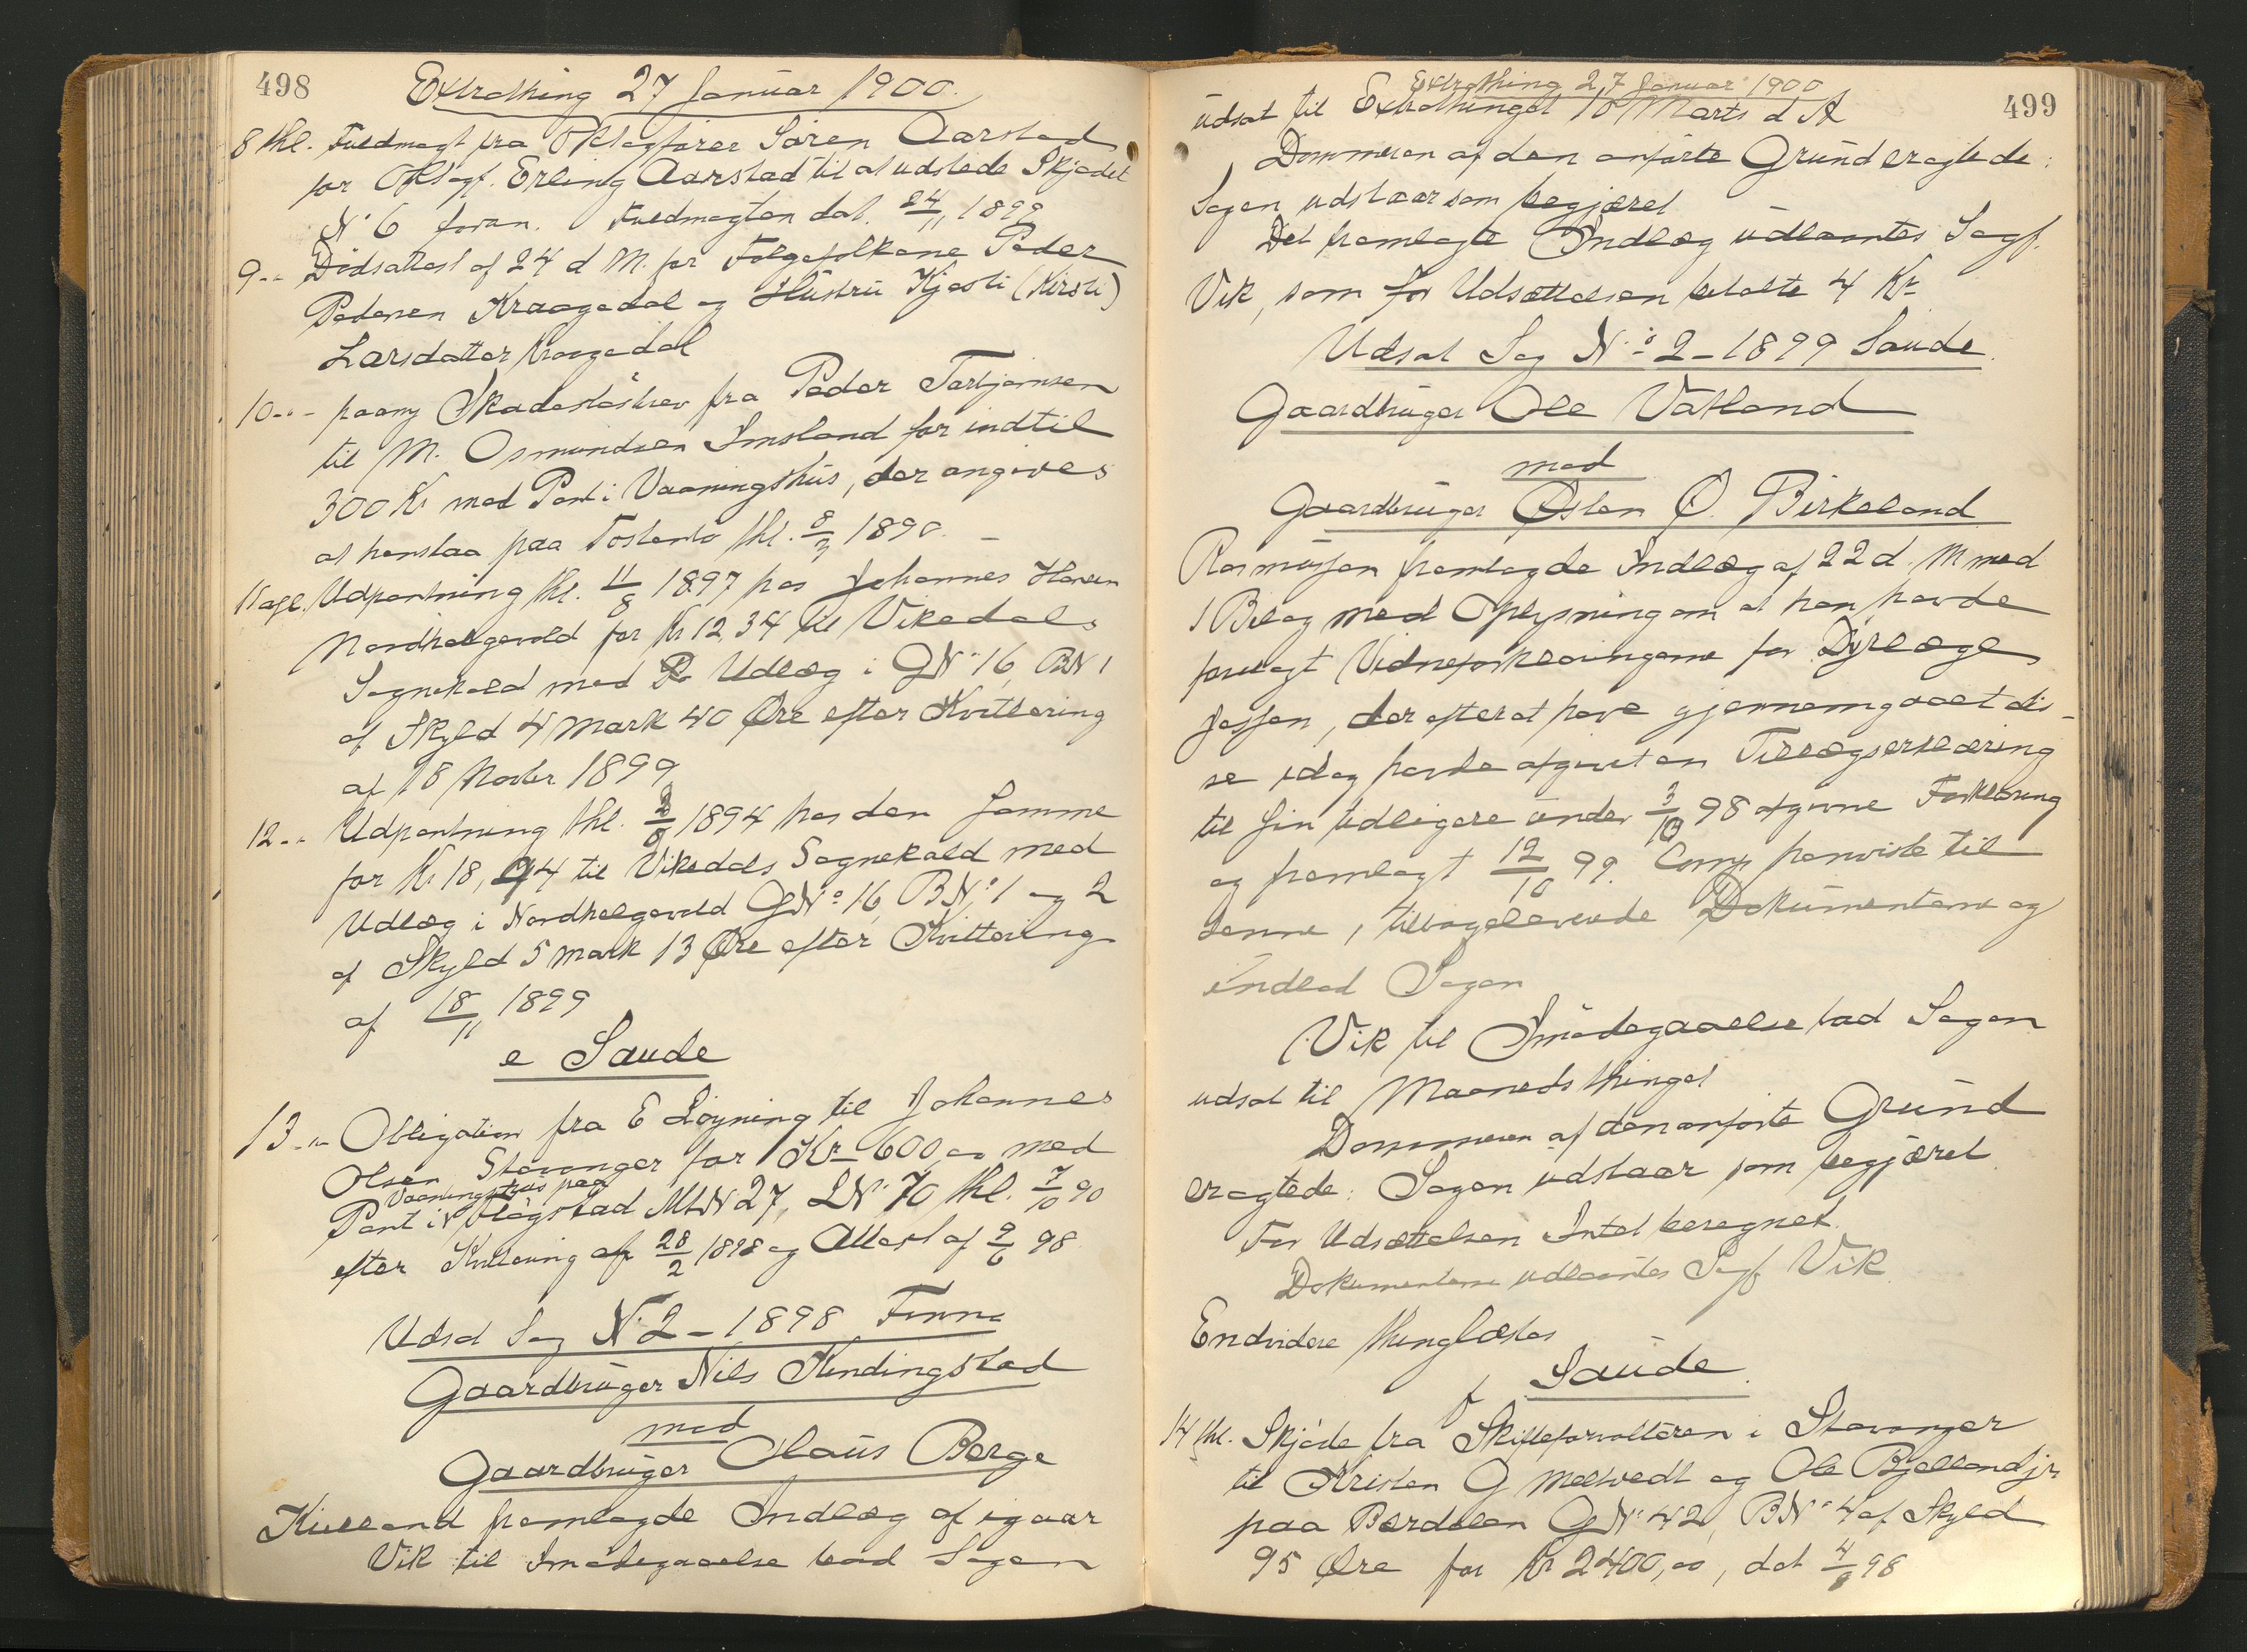 498
Extrathing 27 Januar 1900.
8 thl. Fuldmagt fra ORSagfører Søren Aarstad
for ORSagf. Erling Aarstad til at udstede Skjødet
N: 6 foran. Fuldmagten dat. 24/11 1899
9 " " Dødsattest af 24 d M. for Følgefolkene Peder
Pedersen Kraagedal og Hustru Kjesti (Kirsti)
Larsdatter Kraagedal
10 " " paany Skadesløsbrev fra Peder Torbjørnsen
til M. Osmundsen Imsland for indtil
300 Kr med Pant i Vaaningshus, der angives
at henstaa paa Tostenbø thl. 8/3 1890. –
11 afl. Udpantning thl. 11/8 1897 hos Johannes Hansen
Nordhelgevold for Kr 12,34 til Vikedals
Sognekald med Udlæg i GN: 16, BN 1
af Skyld 4 Mark 40 Øre efter Kvittering
af 18 Novbr 1899
12 " " Udpantning thl. 2/8 1894 hos den samme
for Kr 18,94 til Vikedals Sognekald med
Udlæg i Nordhelgevold GN: 16, BN: 1 og 2
af Skyld 5 Mark 13 Øre efter Kvittering
af 18/11 1899
e Saude
13 " " Obligation fra E Løyning til Johannes
Olsen Stavanger for Kr 600,00 med
Vaaningshus paa
Pant i Fløgstad MtN 27, LN: 70 thl. 7/10 90
efter Kvittering af 28/2 1898 og Attest af 9/6 98
Udsat Sag N: 2 – 1898 Finnø
Gaardbruger Nils Kindingstad
mod
Gaardbruger Claus Berge
Kielland fremlagde Indlæg af igaar
Vik til Imødegaaelse bad Sagen
499
Extrathing 27 Januar 1900
udsat til Extrathinget 10 Marts d A
Dommeren af den anførte Grund eragtede:
Sagen udstaar som begjæret
Det fremlagte Indlæg udlaantes Sagf.
Vik, som for Udsættelsen betalte 4 Kr
Udsat Sag N: 2 – 1899 Saude
Gaardbruger Ole Vatland
mod
Gaardbruger Østen Ø. Birkeland
Rasmusen fremlagde Indlæg af 22 d. M med
1 Bilag med Oplysning om at han havde
forelagt Vidneforklaringerne for Dyrlæge
Jessen, der efter at have gjennemgaaet dis-
se idag havde afgivet en Tillægserklæring
til sin tidligere under 3/10 98 afgivne Forklaring
og fremlagt 12/10 99. Comp henviste til
denne, tilbageleverede Dokumenterne og
indlod Sagen
Vik til Imødegaaelse bad Sagen
udsat til Maanedsthinget
Dommeren af den anførte Grund
eragtede: Sagen udstaar som begjæret
For Udsættelsen Intet beregnet.
Dokumenterne udlaantes Sagf Vik
Endvidere thinglæstes
f Saude
14 thl. Skjøde fra Skifteforvalteren i Stavanger
til Kristen G Meltvedt og Ole Bjelland jr
paa Bærdalen GN: 42, BN: 4 af Skyld
95 Øre for Kr 2400,00, dat 4/8 98